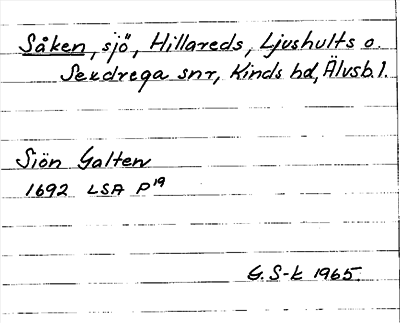 Såken, sjö, Hillareds, Ljushults o.
Sexdrega snr, Kinds hd, Älvsb. l.
Siön Galten
1692 LSA P19
G. S-k 1965.